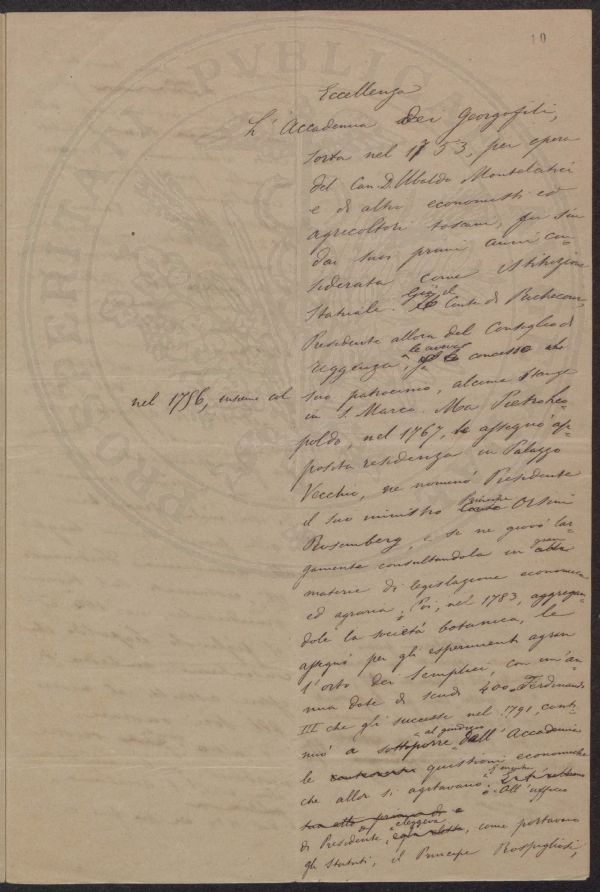 10
Eccellenza
L'Accademia dei Georgofili,
sorta nel 1753, per opera
del Can. D. Ubaldo Montelatici
e di altri economisti ed
agricoltori toscani, fu sin
dai suoi primi anni con-
siderata come istituzione
statuale. Già il Conte di Richecour,
Presidente allora del Consiglio di
reggenza, le aveva concesso
nel 1756, insieme col
suo patrocinio, alcune stanze
in S. Marco. Ma Pietro Leo-
poldo, nel 1767, le assegnò ap-
posita residenza in Palazzo
Vecchio, ne nominò Presidente
il suo ministro Principe Orsini
Rosemberg, e se ne giovò lar-
gamente consultandola in
materie di legislazione economica
ed agraria. Poi, nel 1783, aggregan-
dole la società botanica, le
assegnò per gli esperimenti agrari
l'orto dei Semplici, con un'an-
nua dote di scudi 400. Ferdinando
III che gli successe nel 1791, conti-
nuò a sottoporre al giudizio dell'Accademia
le questioni economiche
che allor si agitavano. All'ufficio
di Presidente eleggeva, come portavano
gli Statuti, il Principe Rospigliosi,
PRO REI PVBLICAE